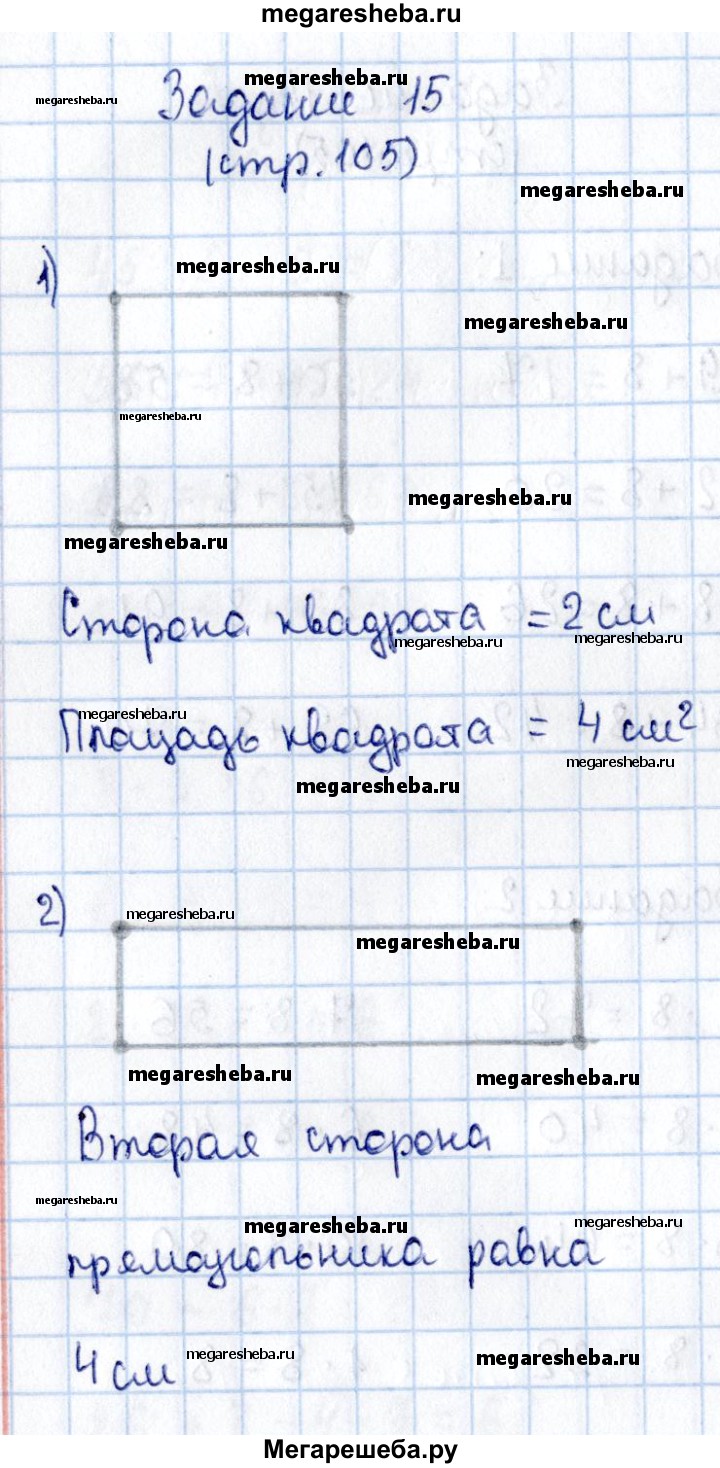 megaresheba.ru
megaresheba.ru
megaresheba.ru
Задание 15
(стр. 105)
megaresheba.ru
1)
megaresheba.ru
megaresheba.ru
megaresheba.ru
megaresheba.ru
megaresheba.ru
Сторона квадрата = 2 см
megaresheba.ru
megaresheba.ru
megaresheba.ru
Площадь квадрата = 4 см²
megaresheba.ru
megaresheba.ru
2)
megaresheba.ru
megaresheba.ru
megaresheba.ru
megaresheba.ru
Вторая сторона
megaresheba.ru
megaresheba.ru
megaresheba.ru
прямоугольника равна
4 см
megaresheba.ru
megaresheba.ru
Мегарешеба.ру